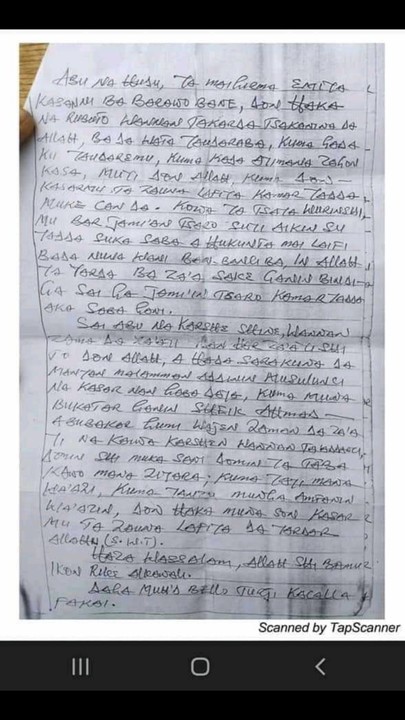 ABU NA HUDU, TA MAI
KASANNI BA BARAWO BANE, DON HAKA
NA RUBUTO WANNAN TAKARDA TSAKANINA DA
ALLAH, BA DA WATA YAUDARABA, KUMA
KU YAUDAREMU, KUMA KADA AYIMANA ZAGON
KASA, MUYI DON ALLAH, KUMA DON
KASARMU TA ZAUNA LAFIYA KAMAR YADDA
MUKE CAN DA. KOWA YA TSAYA WURINSHI,
MU BAR JAMI'AN TSARO SUYI AIKIN SU
YADDA SUKA SABA A HUKUNTA MAI LAIFI
BADA NUNA WANI BAN-BANCI BA, IN ALLAH
YA YARDA BA ZA'A SAKE GANIN BINDI-
GA SAI GA JAMI'IN TSARO KAMAR YADDA
AKA SABA GANI.
SAI ABU NA KARSHE SHINE, WANNAN
ZAMA DA ZA'AYI
YI DON ALLAH, A HADA SARAKUNA DA
MANYAN MALAMMAN ADDININ MUSULUNCI
NA KASAR NAN GABA DAYA, KUMA MUNA
BUKATAR GANIN SHEIK AHMAD
ABUBAKAR GUMI WAJEN ZAMAN DA ZA'A
YI NA KAWO KARSHEN WANNAN TA'ADDACI,
DOMIN SHI MUKA SANI DOMIN YA TABA
KAWO MANA ZIYARA, KUMA YAYI MANA
WA'AZI, KUMA YANZU MUNGA AMFANIN
WA'AZIN, DON HAKA MUNA SON KASAR
MU TA ZAUNA LAFIYA DA YARDAR
ALLAH (S.W.T).
HAZA WASSALAM, ALLAH SHI BAMU
IKON RIKE ALKAWALI.
DAGA MUH'D BELLO TURJI KACALLA
FAKAI.
Scanned by TapScanner